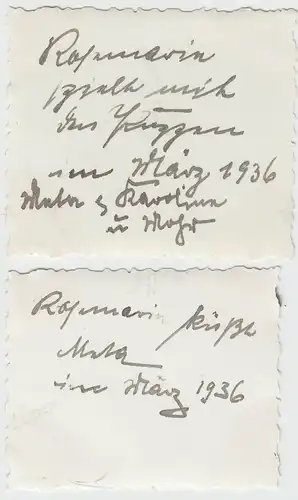 Rosemarie
spielt mit
den Puppen
im März 1936
Meta & Karoline
u Mohr
Rosemarie küßt
Meta
im März 1936